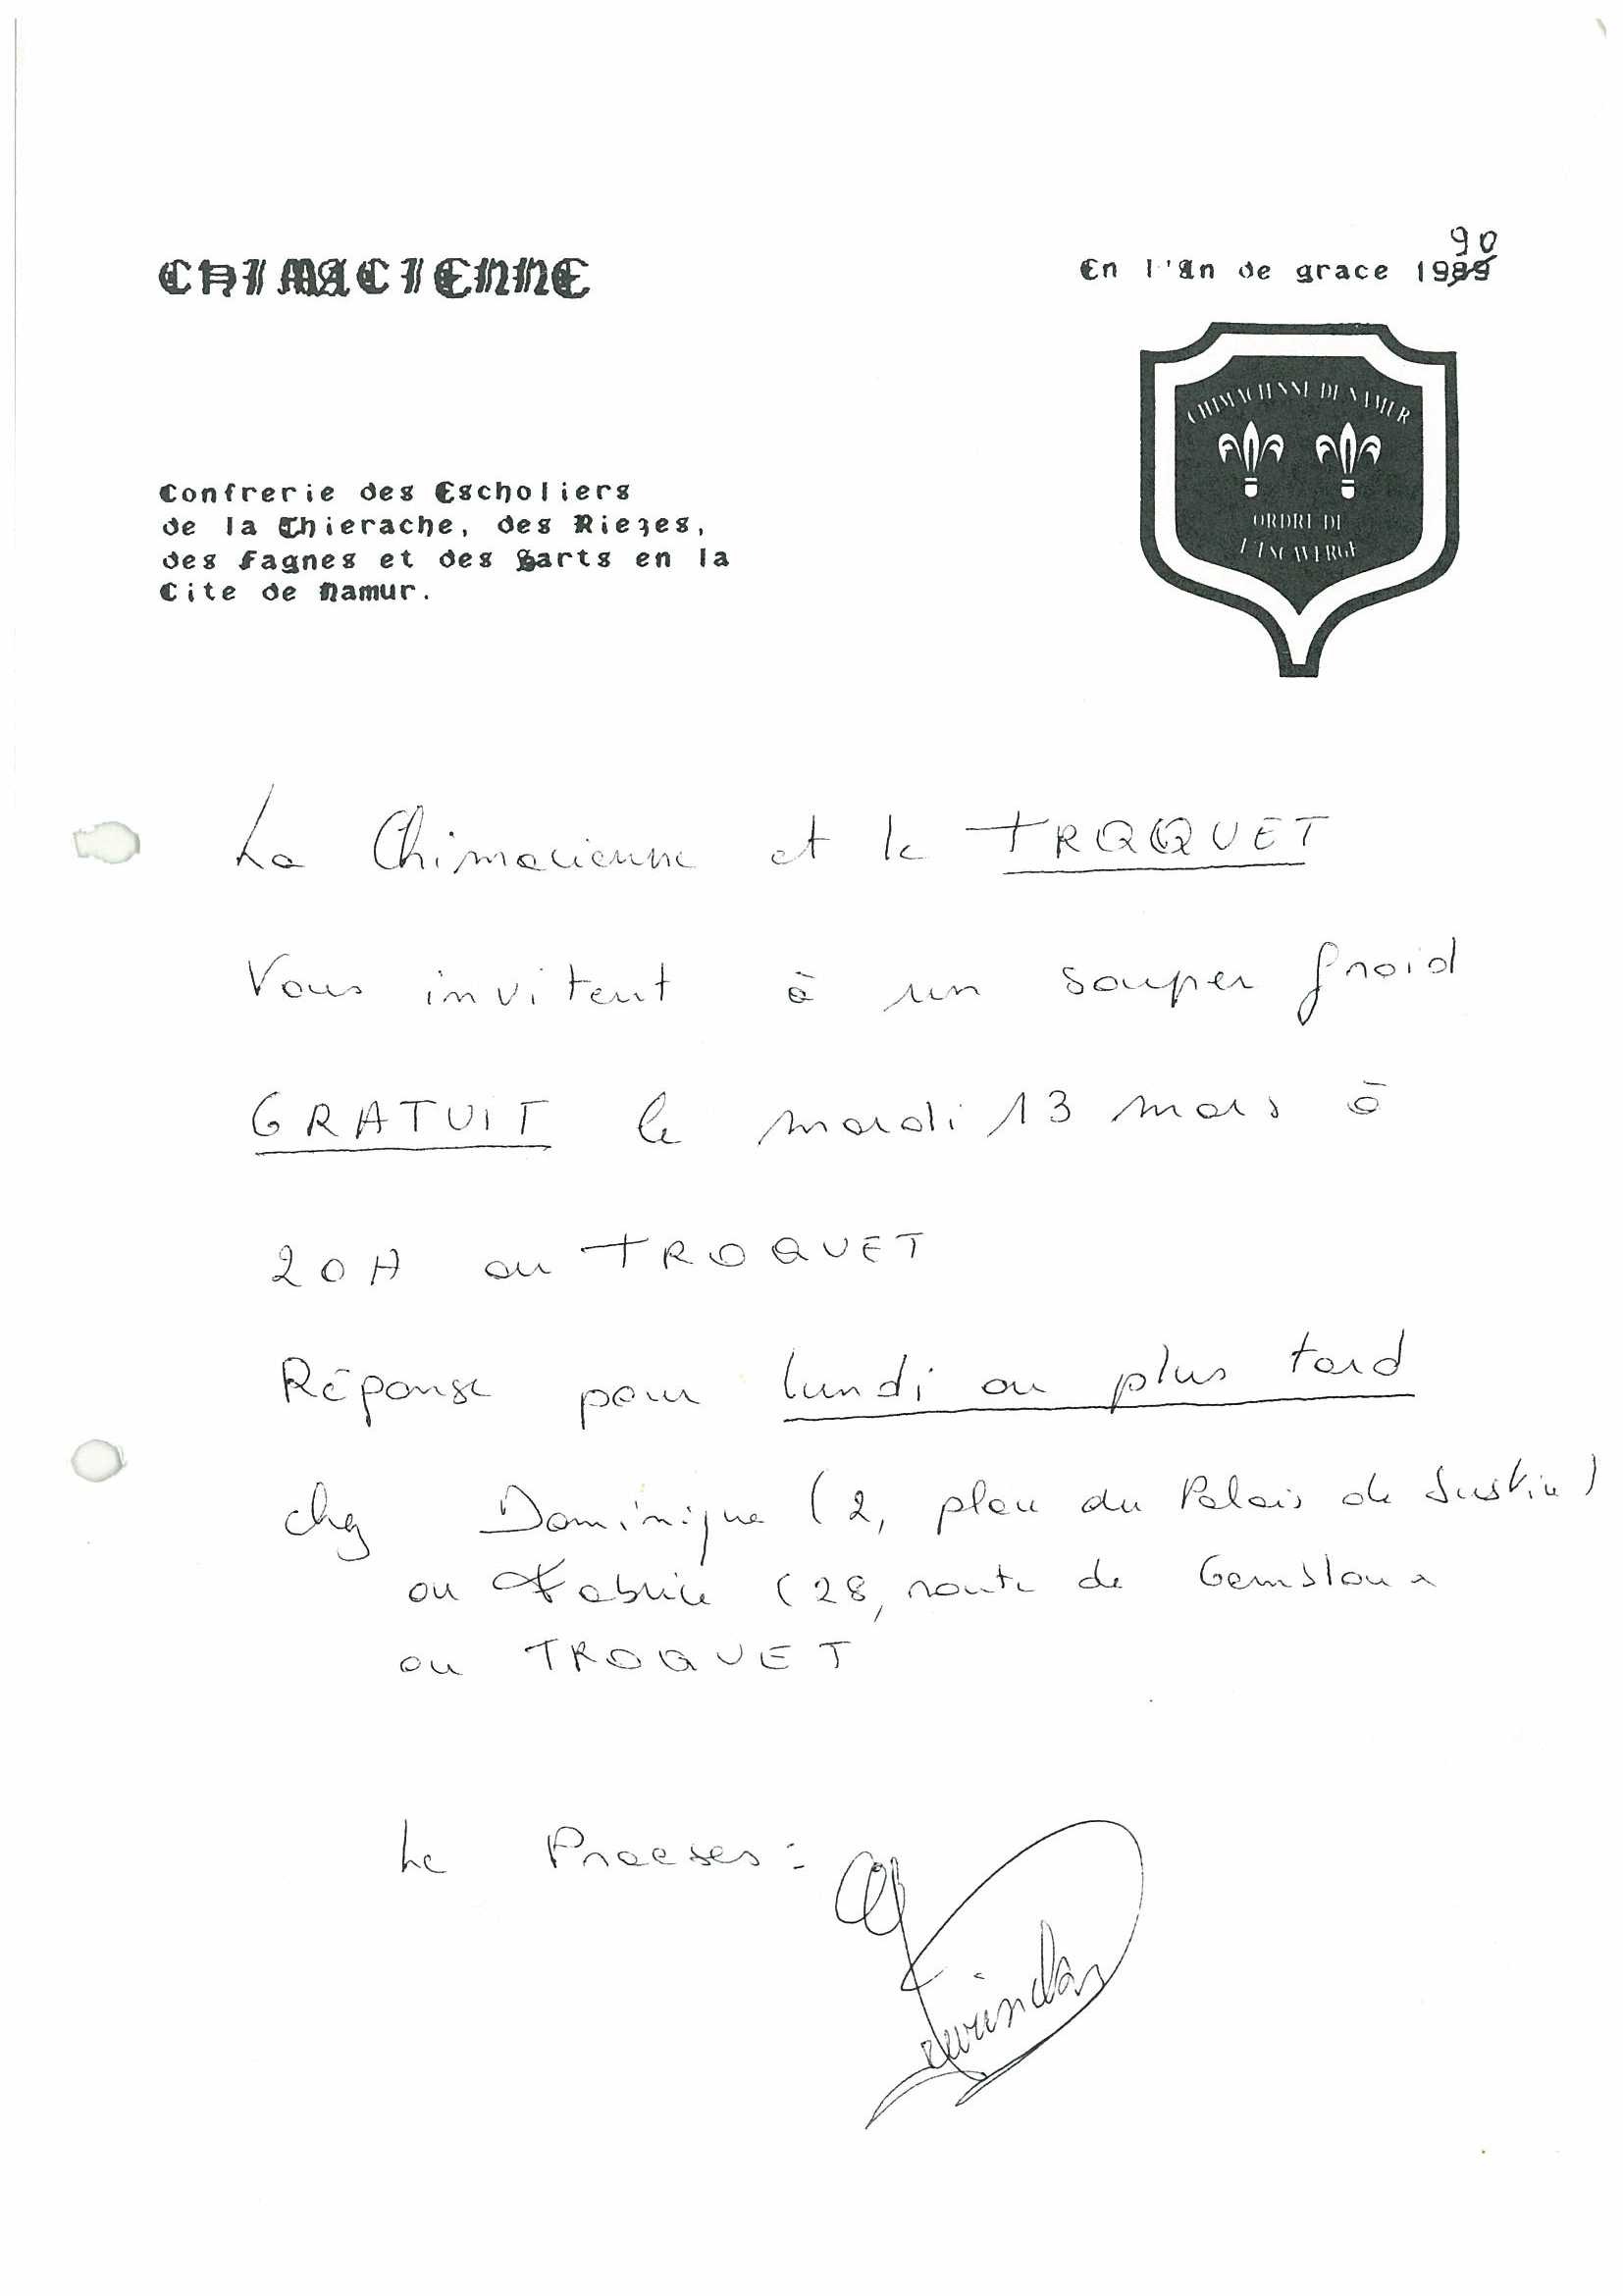 CHIMACIENNE
En l'An de grace 1989
90
CHIMACIENNE DE NAMUR
ORDRE DE
L'ESCAVERGE
Confrerie des Escholiers
de la Thierache, des Riezes,
des Fagnes et des Sarts en la
Cite de Namur.
La Chimacienne et le TROQUET
Vous invitent à un souper froid
GRATUIT le mardi 13 mars à
20H au TROQUET
Réponse pour lundi au plus tard
chez Dominique (2, place du Palais de Justice)
ou Fabrice (28, route de Gembloux
ou TROQUET
Le Praeses: